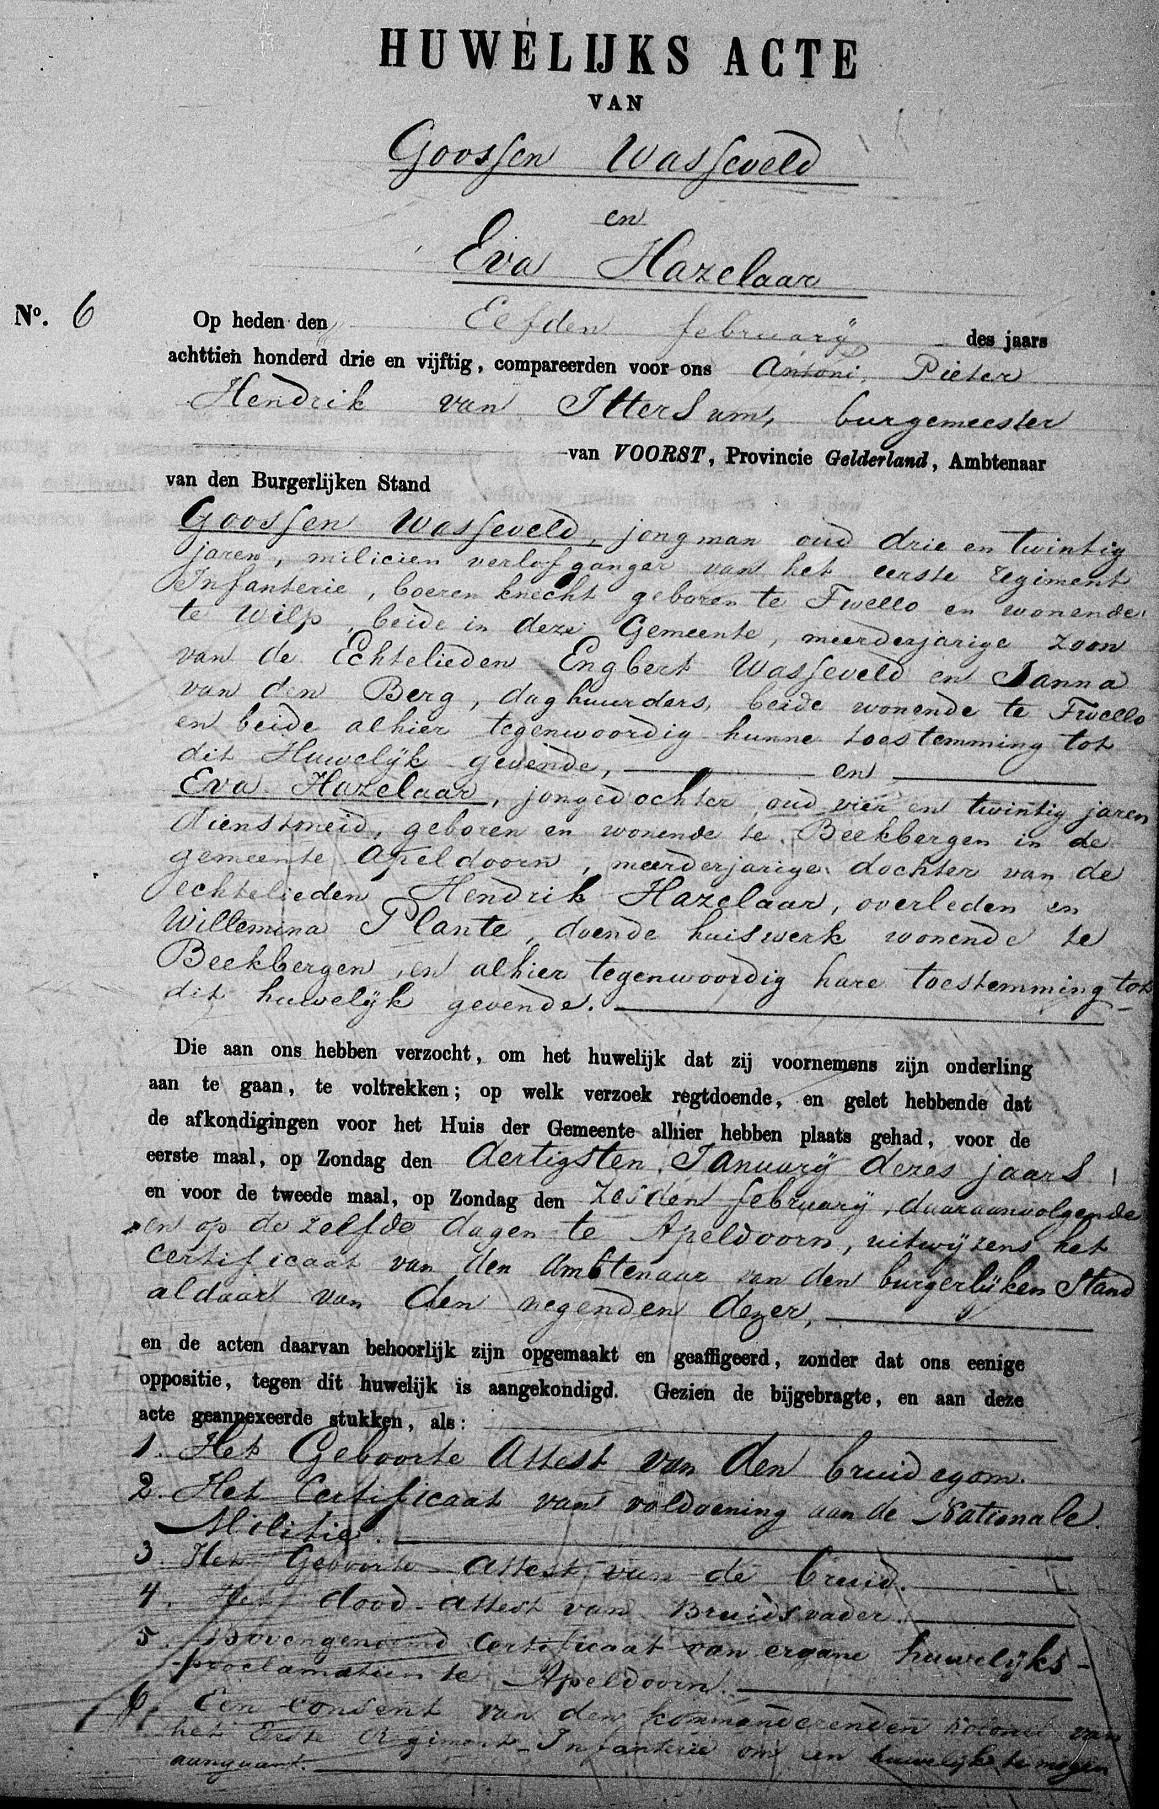 HUWELIJKS ACTE
VAN
Goossen Wasseveld
en
Eva Hazelaar
No. 6
Op heden den Elfden februarij des jaars
achttien honderd drie en vijftig, compareerden voor ons Antoni, Pieter
Hendrik van Ittersum, burgemeester
van VOORST, Provincie Gelderland, Ambtenaar
van den Burgerlijken Stand
Goossen Wasseveld, jongman oud drie en twintig
jaren, milicien verlofganger van het eerste regiment
Infanterie, boerenknecht geboren te Twello en wonende
te Wilp, beide in deze Gemeente, meerderjarige zoon
van de Echtelieden Engbert Wasseveld en Janna
van den Berg, daghuurders, beide wonende te Twello
en beide alhier tegenwoordig hunne toestemming tot
dit Huwelijk gevende, en
Eva Hazelaar, jongedochter oud vier en twintig jaren
dienstmeid, geboren en wonende te Beekbergen in de
gemeente Apeldoorn, meerderjarige dochter van de
echtelieden Hendrik Hazelaar, overleden en
Willemina Plante, doende huiswerk wonende te
Beekbergen, en alhier tegenwoordig hare toestemming tot
dit huwelijk gevende.
Die aan ons hebben verzocht, om het huwelijk dat zij voornemens zijn onderling
aan te gaan, te voltrekken; op welk verzoek regtdoende, en gelet hebbende dat
de afkondigingen voor het Huis der Gemeente alhier hebben plaats gehad, voor de
eerste maal, op Zondag den dertigsten Januarij dezes jaars
en voor de tweede maal, op Zondag den zesden februarij, daaraanvolgende
en op de zelfde dagen te Apeldoorn, uitwijzens het
certificaat van den Ambtenaar van den burgerlijken Stand
aldaar van den negenden dezer,
en de acten daarvan behoorlijk zijn opgemaakt en geaffigeerd, zonder dat ons eenige
oppositie, tegen dit huwelijk is aangekondigd. Gezien de bijgebragte, en aan deze
acte geannexeerde stukken, als:
1. Het Geboorte Attest van den bruidegom.
2. Het Certificaat van voldoening aan de Nationale
Militie.
3. Het Geboorte attest van de bruid.
4. Het dood-attest van Bruids vader.
5. Bovengenoemd certificaat van ergane huwelijks-
proclamatien te Apeldoorn.
6. Een consent van den kommanderenden kolonel van
het Eerste Regiment Infanterie om een huwelijk te mogen
aangaan.